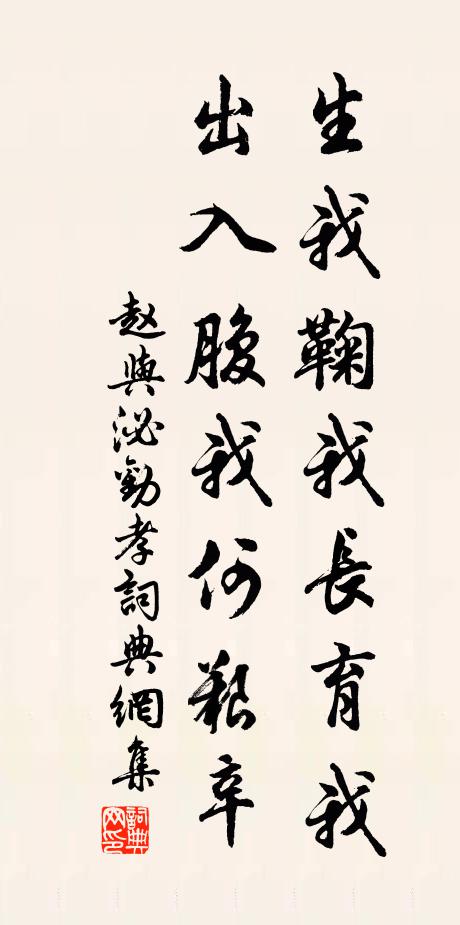 生我鞠我長育我
出入腹我何艱辛
赵與泌勸孝詞典網集
詞典網印